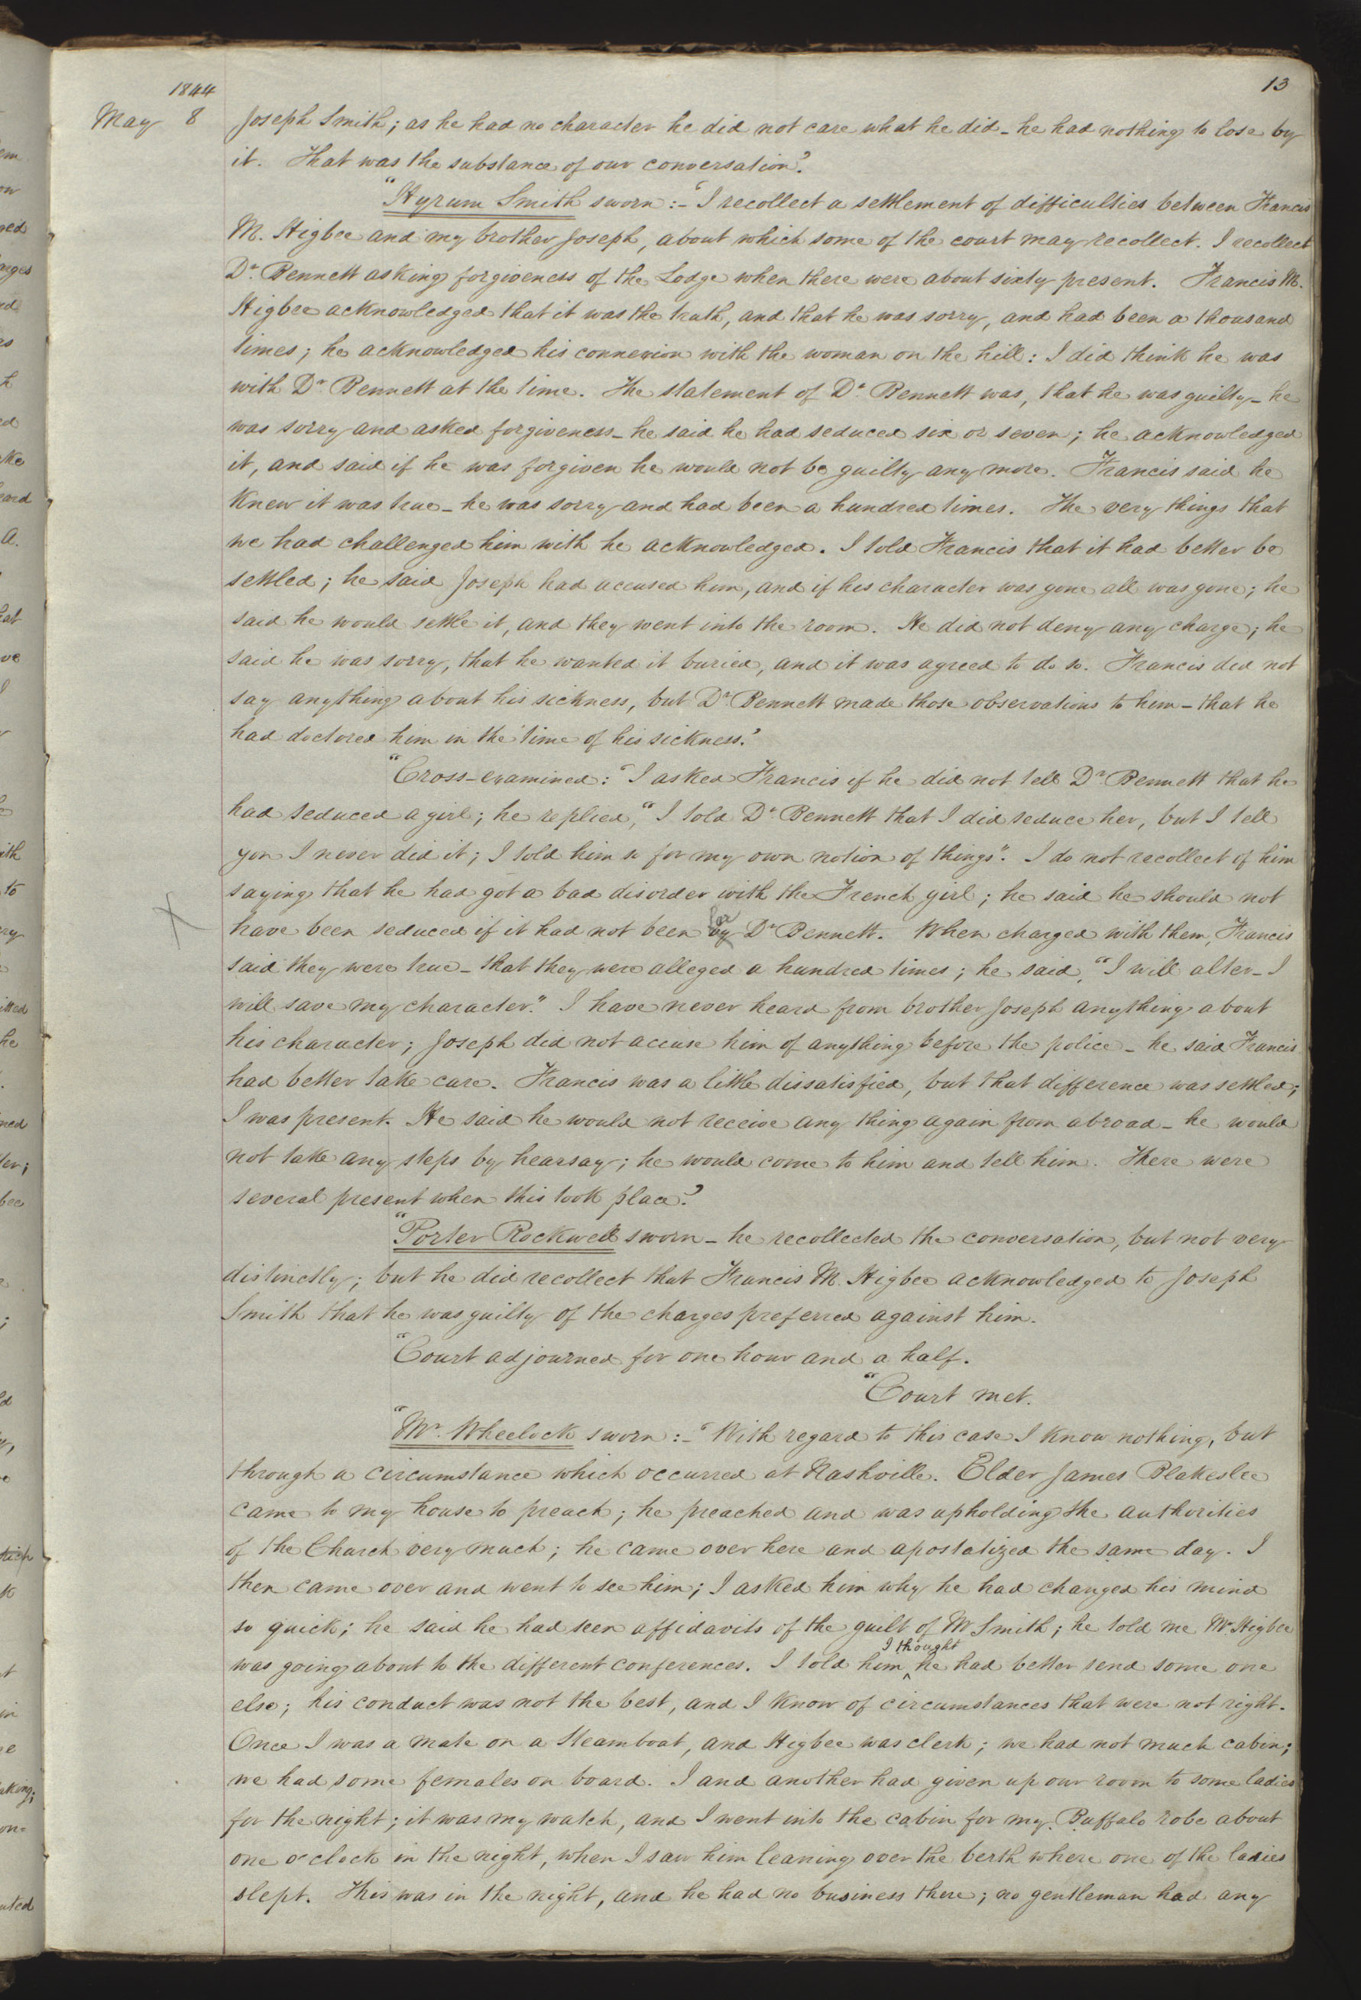 13
1844
May 8 Joseph Smith; as he had no character he did not care what he did – he had nothing to lose by
it. That was the substance of our conversation.'
"Hyrum Smith sworn:– 'I recollect a settlement of difficulties between Francis
M. Higbee and my brother Joseph, about which some of the court may recollect. I recollect
Dr. Bennett asking forgiveness of the Lodge when there were about sixty present. Francis M.
Higbee acknowledged that it was the truth, and that he was sorry, and had been a thousand
times; he acknowledged his connexion with the woman on the hill: I did think he was
with Dr. Bennett at the time. The statement of Dr. Bennett was, that he was guilty – he
was sorry and asked forgiveness – he said he had seduced six or seven; he acknowledged
it, and said if he was forgiven he would not be guilty any more. Francis said he
knew it was true – he was sorry and had been a hundred times. The very things that
we had challenged him with he acknowledged. I told Francis that it had better be
settled; he said Joseph had accused him, and if his character was gone all was gone; he
said he would settle it, and they went into the room. He did not deny any charge; he
said he was sorry, that he wanted it buried, and it was agreed to do so. Francis did not
say anything about his sickness, but Dr. Bennett made those observations to him – that he
had doctored him in the time of his sickness.'
"Cross-examined: 'I asked Francis if he did not tell Dr. Bennett that he
had seduced a girl; he replied, "I told Dr. Bennett that I did seduce her, but I tell
you I never did it; I told him so for my own notion of things". I do not recollect of him
saying that he had got a bad disorder with the French girl; he said he should not
have been seduced if it had not been by for Dr. Bennett. When charged with them, Francis
said they were true – that they were alleged a hundred times; he said, "I will alter – I
will save my character." I have never heard from brother Joseph anything about
his character; Joseph did not accuse him of anything before the police – he said Francis
had better take care. Francis was a little dissatisfied, but that difference was settled;
I was present. He said he would not receive any thing again from abroad – he would
not take any steps by hearsay; he would come to him and tell him. There were
several present when this took place.'
"Porter Rockwell sworn – he recollected the conversation, but not very
distinctly; but he did recollect that Francis M. Higbee acknowledged to Joseph
Smith that he was guilty of the charges preferred against him.
"Court adjourned for one hour and a half.
"Court met.
"Mr. Wheelock sworn:– 'With regard to this case I know nothing, but
through a circumstance which occurred at Nashville. Elder James Blakeslee
came to my house to preach; he preached and was upholding the authorities
of the Church very much; he came over here and apostatized the same day. I
then came over and went to see him; I asked him why he had changed his mind
so quick; he said he had seen affidavits of the guilt of Mr Smith; he told me Mr Higbee
was going about to the different conferences. I told him ^I thought he had better send some one
else; his conduct was not the best, and I know of circumstances that were not right.
Once I was a mate on a Steamboat, and Higbee was clerk; we had not much cabin;
we had some females on board. I and another had given up our room to some ladies
for the night; it was my watch, and I went into the cabin for my Buffalo robe about
one o'clock in the night, when I saw him leaning over the berth where one of the ladies
slept. This was in the night, and he had no business there; no gentleman had any